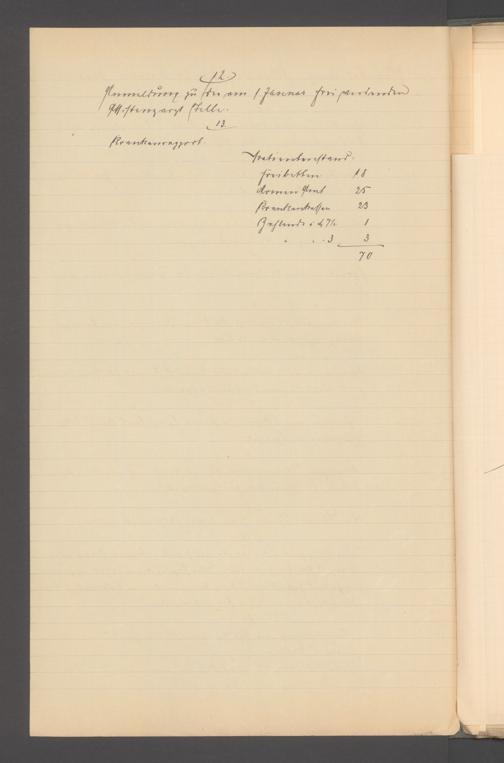 12
Anmeldung zu der am 1 Januar frei werdenden
Assistenzarzt Stelle.
13
Krankenrapport.
Patientenstand.
Freibetten 18
Armen Amt 25
Krankenkassen 23
Zahlende à 1
" " 3 3
70